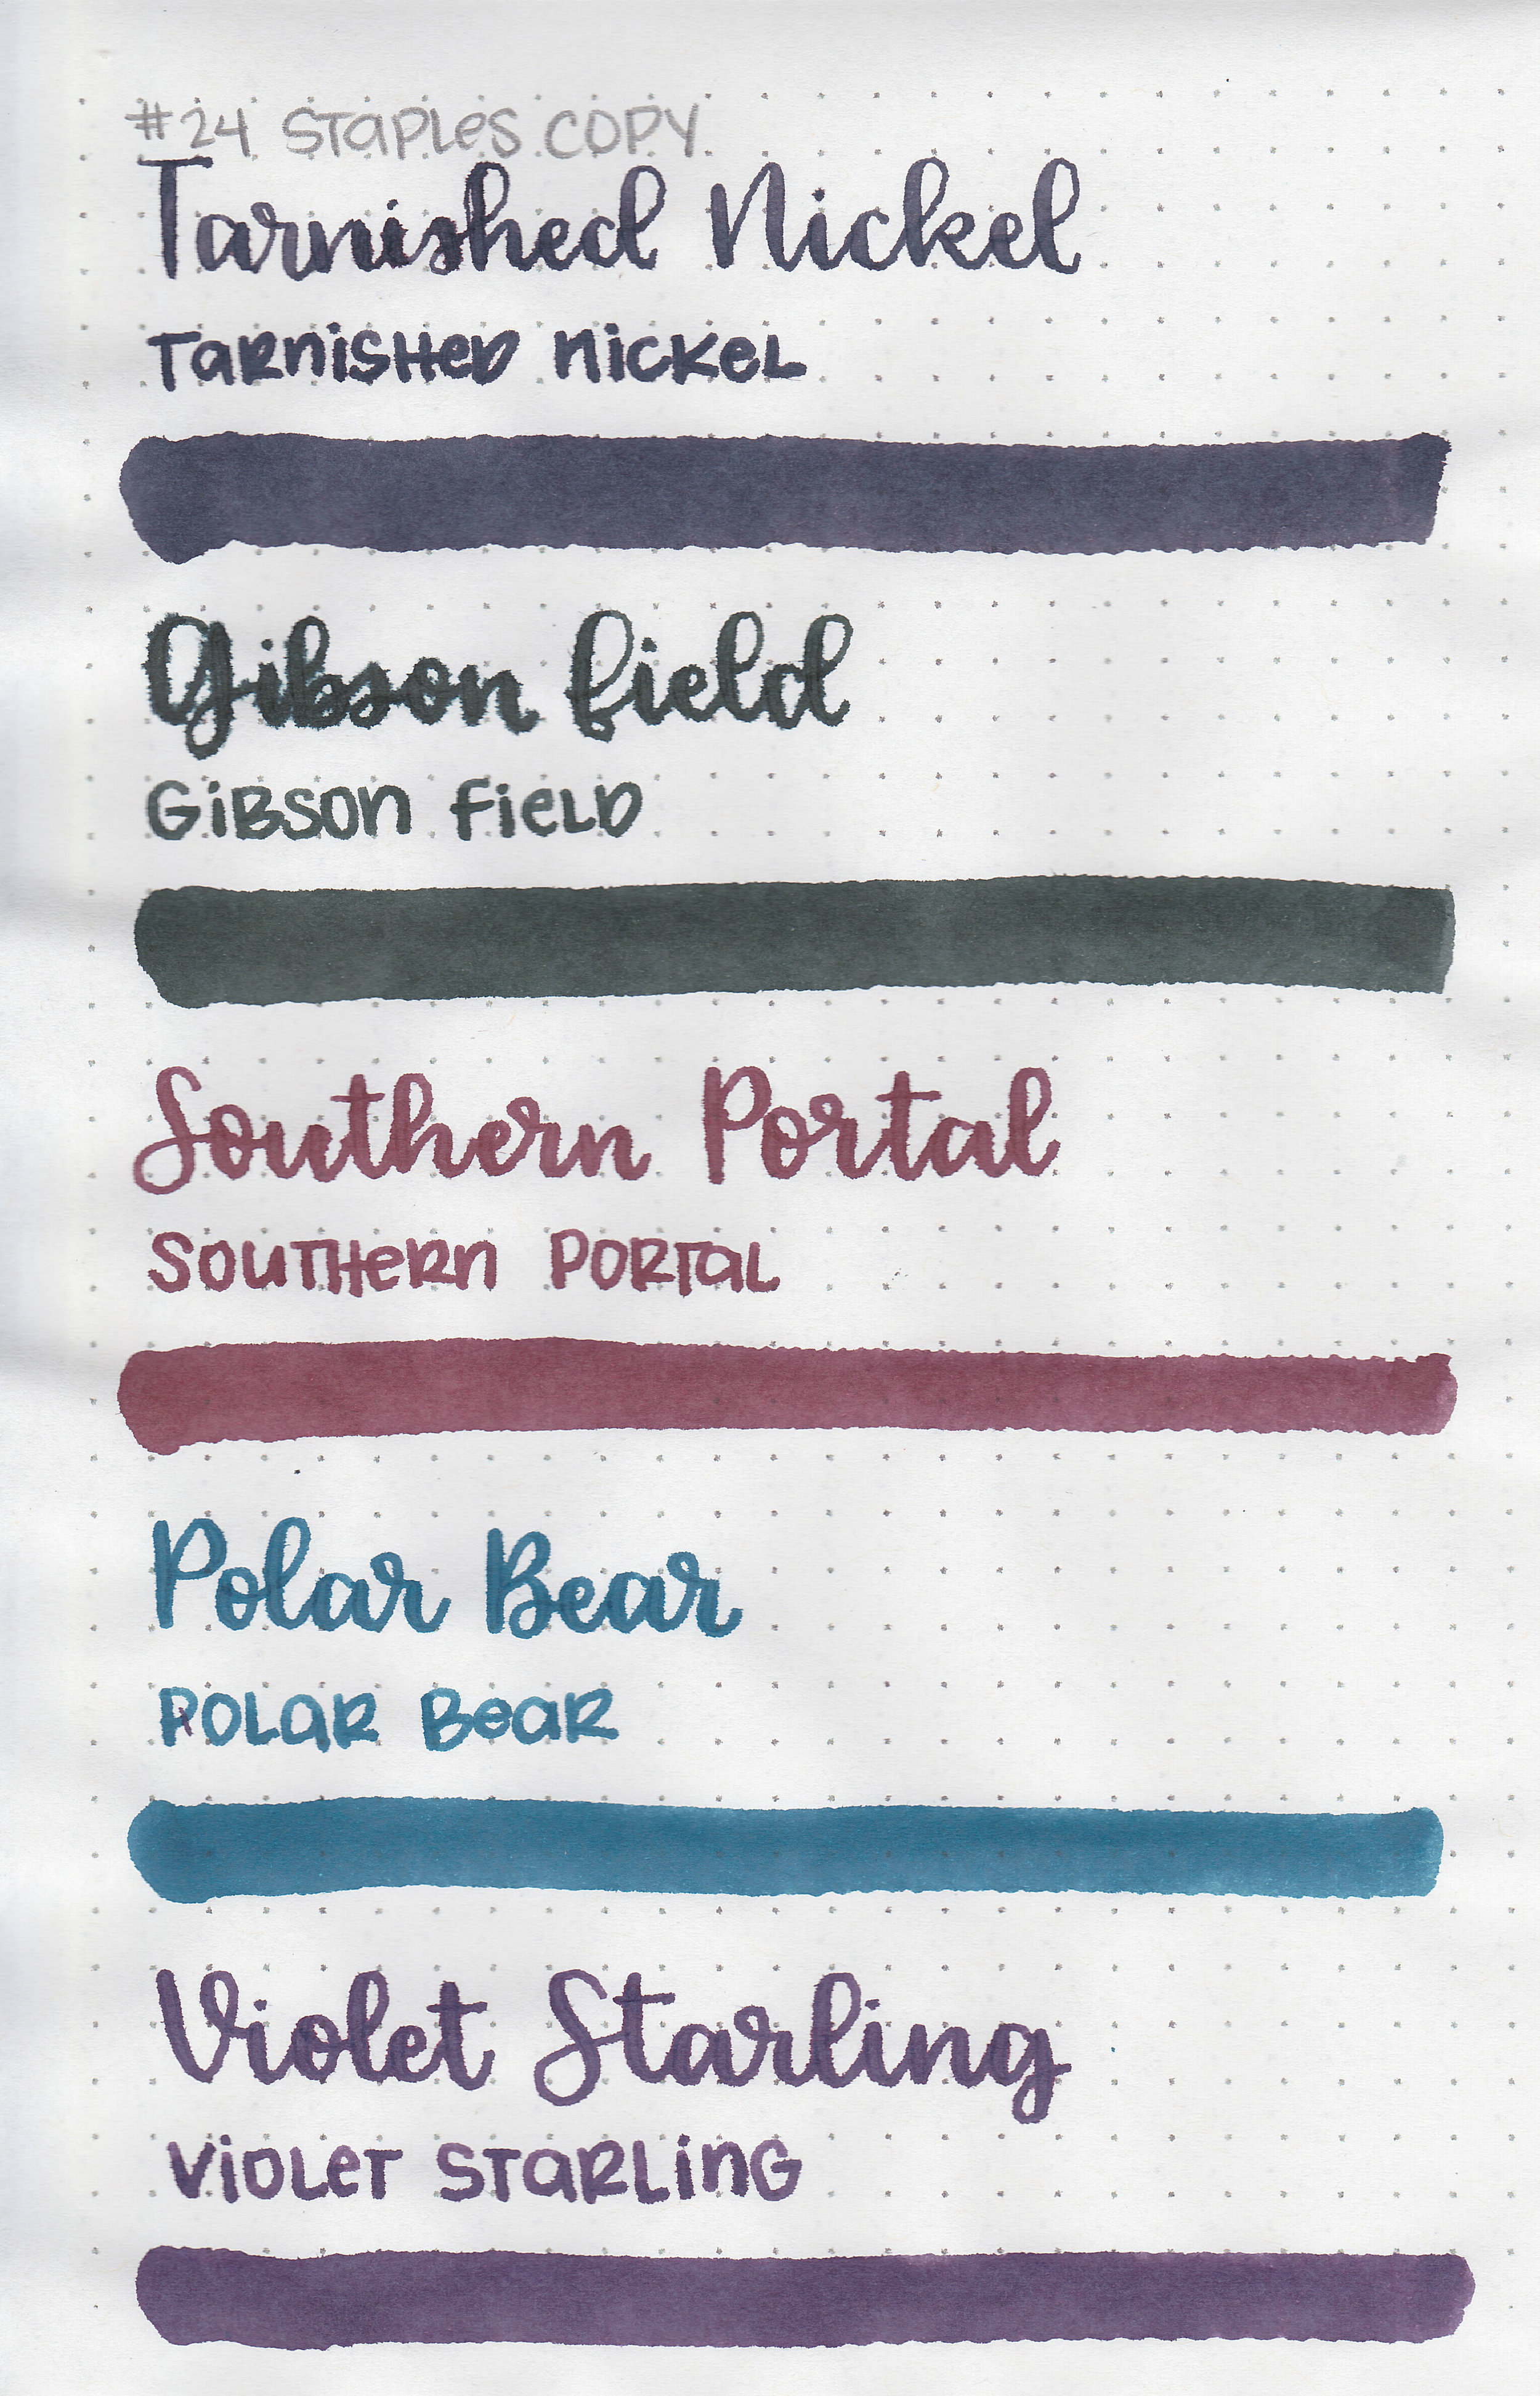 #24 STaPLes COPY
Tarnished Nickel
TaRniSHeD niCKeL
Gibson field
GiBSOn FieLD
Southern Portal
SOUTHeRn PORTaL
Polar Bear
POLaR BeaR
Violet Starling
VioLeT STaRLinG